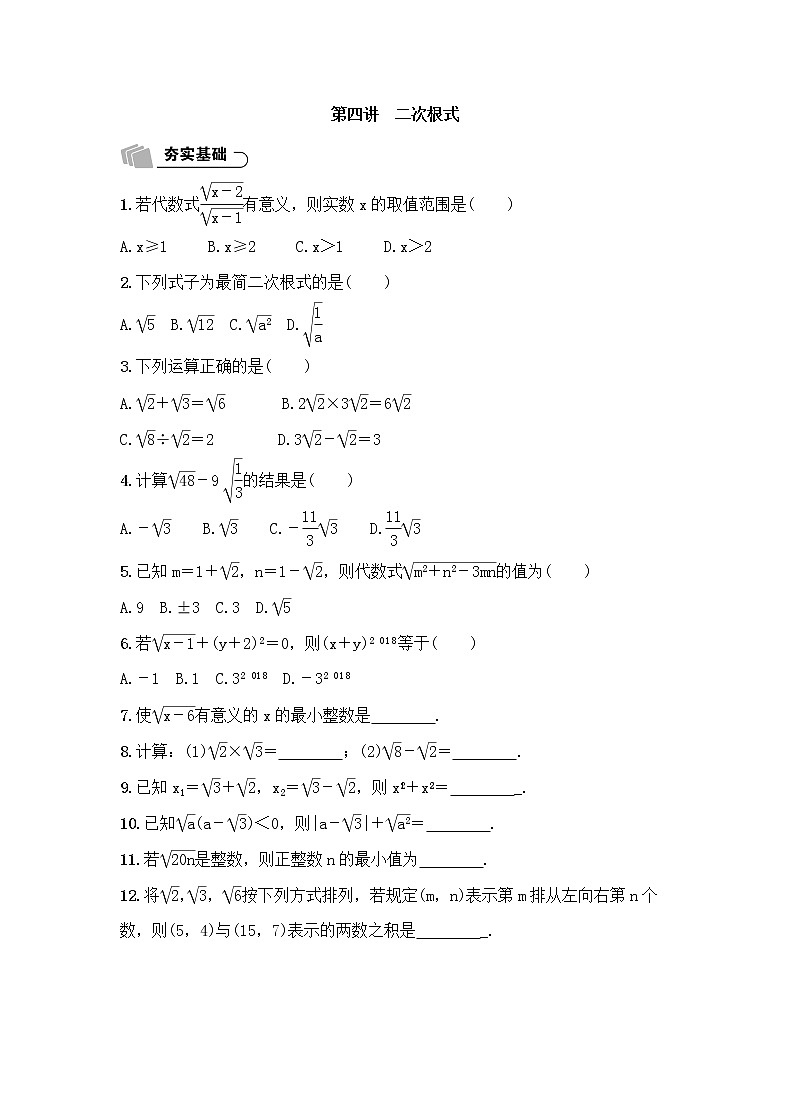 第四讲　二次根式
夯实基础
1.若代数式√(x-2)/√(x-1)有意义，则实数x的取值范围是(　　)
A.x≥1　　B.x≥2　　C.x＞1　　D.x＞2
2.下列式子为最简二次根式的是(　　)
A.√5　B.√12　C.√a²　D.√(1/a)
3.下列运算正确的是(　　)
A.√2+√3=√6　　　B.2√2×3√2=6√2
C.√8÷√2=2　　　D.3√2-√2=3
4.计算√48-9√(1/3)的结果是(　　)
A.-√3　　B.√3　　C.-11/3√3　　D.11/3√3
5.已知m=1+√2,n=1-√2,则代数式√(m²+n²-3mn)的值为(　　)
A.9　B.±3　C.3　D.√5
6.若√(x-1)+(y+2)²=0,则(x+y)²⁰¹⁸等于(　　)
A.-1　B.1　C.3²⁰¹⁸　D.-3²⁰¹⁸
7.使√(x-6)有意义的x的最小整数是________.
8.计算：(1)√2×√3=________；(2)√8-√2=________.
9.已知x₁=√3+√2,x₂=√3-√2,则x₁²+x₂²=_________.
10.已知√a(a-√3)＜0,则|a-√3|+√a²=________.
11.若√(20n)是整数，则正整数n的最小值为________.
12.将√2,√3,√6按下列方式排列，若规定(m,n)表示第m排从左向右第n个
数，则(5,4)与(15,7)表示的两数之积是_________.